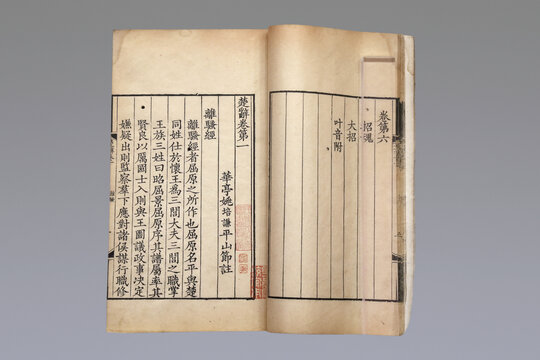 卷第六
招魂
大招
叶音附
楚辭卷第一
華亭姚培謙平山節註
離騷經
離騷經者屈原之所作也屈原名平與楚
同姓仕於懷王爲三閭大夫三閭之職掌
王族三姓曰昭屈景屈原序其譜屬率其
賢良以厲國士入則與王圖議政事決定
嫌疑出則監察羣下應對諸侯謀行職修